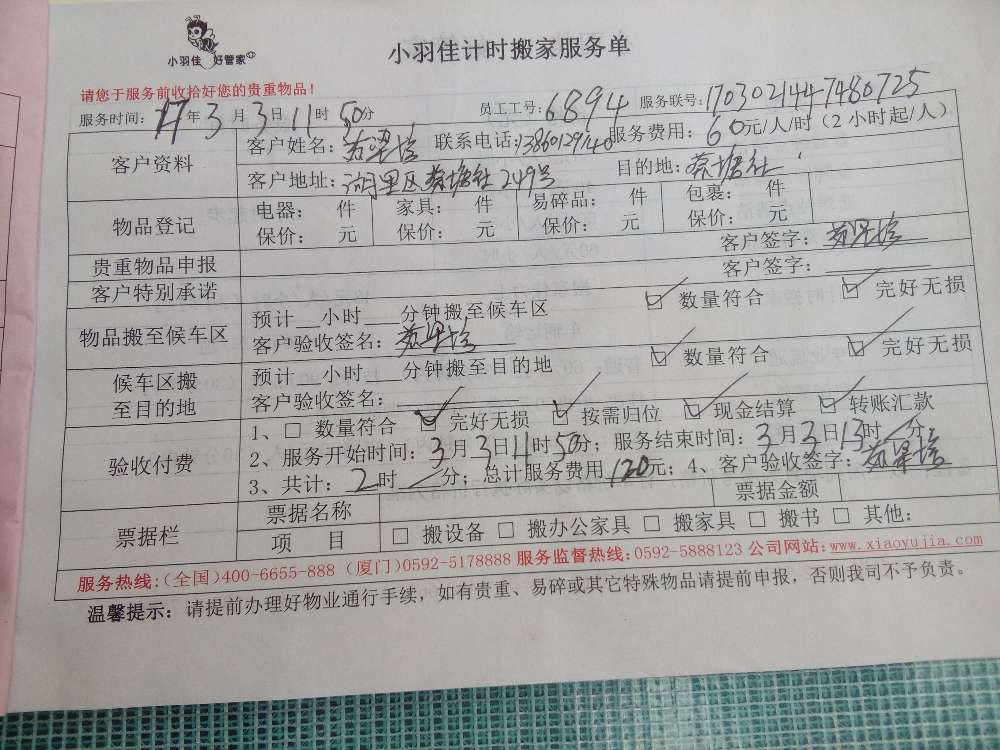 小羽佳 好管家
小羽佳计时搬家服务单
请您于服务前收拾好您的贵重物品！
服务时间：17年3月3日11时50分 员工工号：6894 服务联号：1703021447480725
客户资料
客户姓名： 联系电话：13860129140 服务费用：60元/人/时（2小时起/人）
客户地址：湖里区蔡塘社249号 目的地：蔡塘社
物品登记
电器： 件 家具： 件 易碎品： 件 包裹： 件
保价： 元 保价： 元 保价： 元 保价： 元
贵重物品申报 客户签字：
客户特别承诺 客户签字：
物品搬至候车区
预计__小时___分钟搬至候车区 ☑ 数量符合 ☑ 完好无损
客户验收签名：
候车区搬
至目的地
预计__小时___分钟搬至目的地 ☑ 数量符合 ☑ 完好无损
客户验收签名：
验收付费
1、□ 数量符合 ☑ 完好无损 ☑ 按需归位 ☑ 现金结算 ☑ 转账汇款
2、服务开始时间：3月3日11时50分；服务结束时间：3月3日13时/分；
3、共计：2时/分；总计服务费用120元；4、客户验收签字：
票据栏
票据名称 票据金额
项 目 □ 搬设备 □ 搬办公家具 □ 搬家具 □ 搬书 □ 其他：
服务热线：(全国)400-6655-888 (厦门)0592-5178888 服务监督热线：0592-5888123 公司网站：www.xiaoyujia.com
温馨提示：请提前办理好物业通行手续，如有贵重、易碎或其它特殊物品请提前申报，否则我司不予负责。